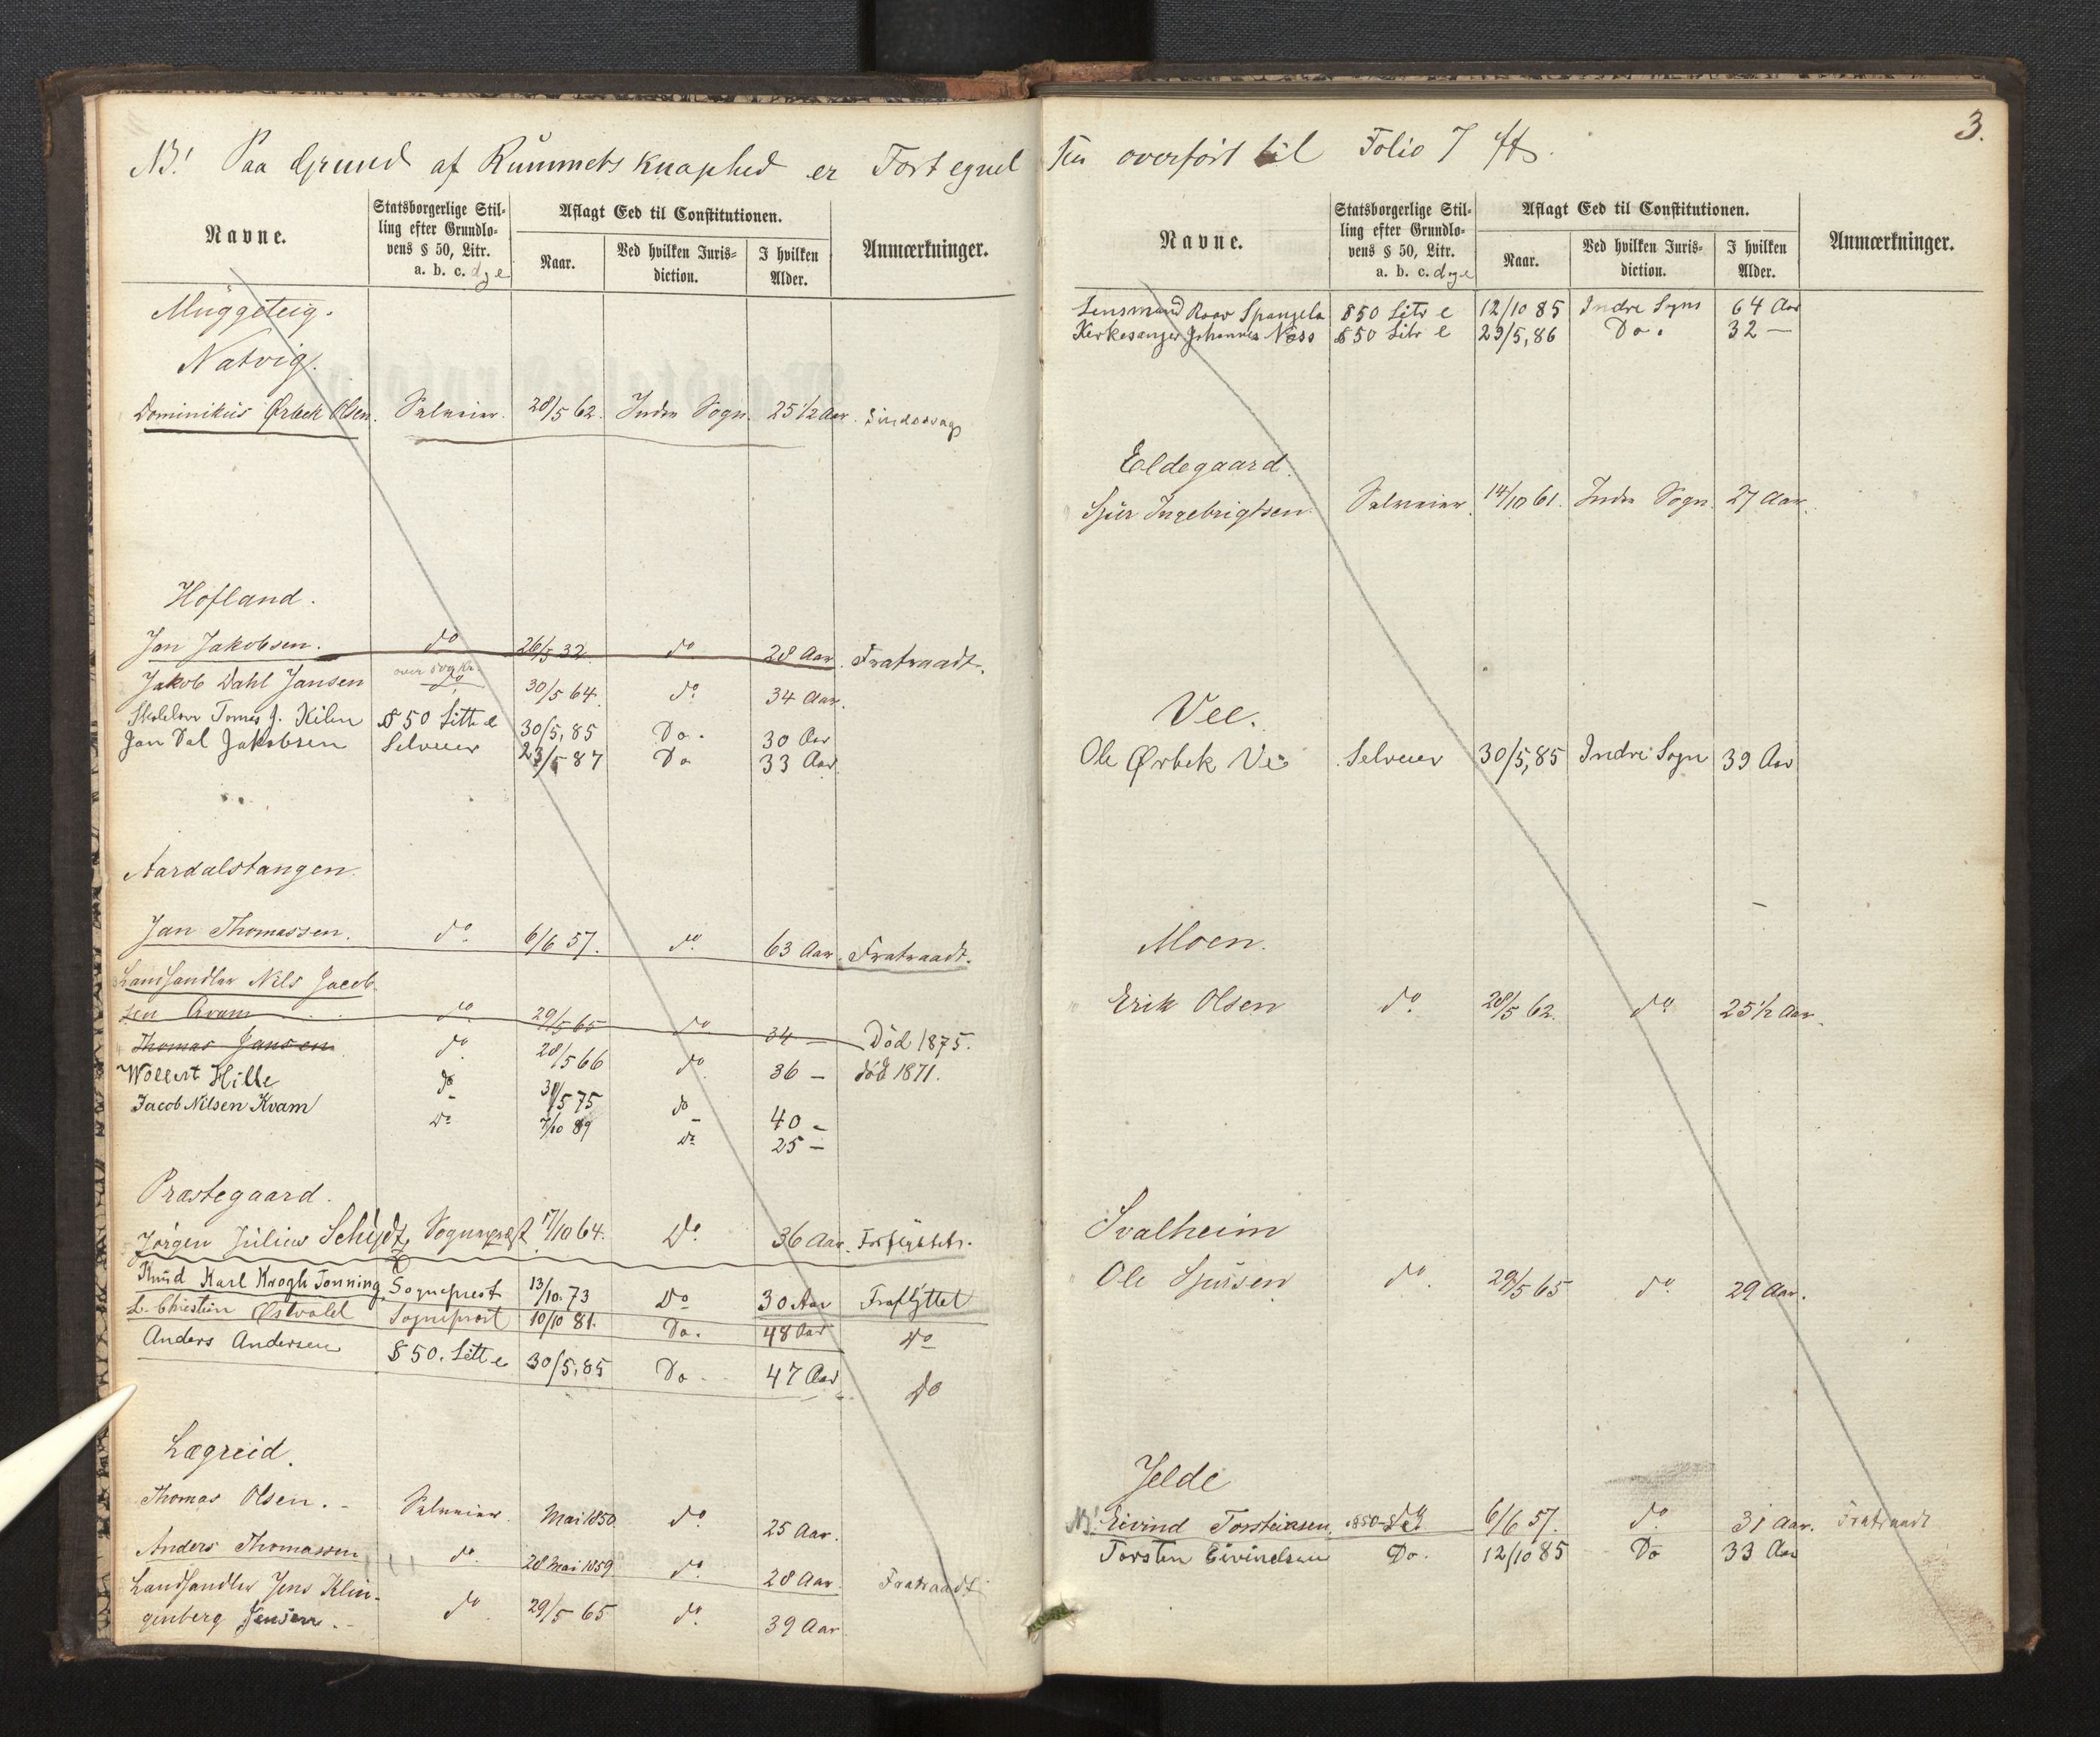 NB! Paa Grund af Rummets Knaphed er Fortegnel
Navne.
Statsborgerlige Stil-
ling efter Grundlo-
vens § 50, Litr.
a. b. c. d, e
Aflagt Eed til Constitutionen.
Naar.
Ved hvilken Juris-
diction.
I hvilken
Alder.
Anmærkninger.
Muggeteig.
Natvig.
Dominikus Ørbek Olsen. Selveier. 28/5 62. Indre Sogn. 25 1/2 Aar.
Hofland.
Jan Jakobsen. do 26/5 32 do 28 Aar. Fratraadt.
Jakob Dahl Jansen do 30/5 64. do 34 Aar.
Tomes J. Kilen § 50 Litt e 30/5, 85 Do. 30 Aar
Jan Dal Jakobsen Selveier 23/5 87 Do 33 Aar
Aardalstangen.
Jan Thomassen. do. 6/6 57. do. 63 Aar. Fratraadt.
Landhandler Nils Jacob-
sen Kvam do 29/5 65 do 34 — Død 1875.
Thomas Jansen do 28/5 66 do. 36 — død 1871.
Wollert Hille do 31/5 75 do 40 —
Jacob Nilsen Kvam Do 7/10 89 Do 25 —
Præstegaard.
Jørgen Julius Schydtz, Sognepræst 17/10 64. Do. 36 Aar. Forflyttet.
Knud Karl Krogh Tonning, Sogneprest 13/10. 73 Do 30 Aar Fraflyttet
L. Christian Østvold Sogneprest 10/10 81. Do. 48 Aar Do
Anders Andersen § 50. Litt e 30/5, 85 Do 47 Aar Do
Lægreid.
Thomas Olsen. Selveier. Mai 1850. do. 25 Aar.
Anders Thomassen do. 28 Mai 1859 do. 28 Aar. Fratraadt
Landhandler Jens Klin-
genberg Jensen. do. 29/5 65 do. 39 Aar
3.
sen overført til Folio 7 ff.
Navne.
Statsborgerlige Stil-
ling efter Grundlo-
vens § 50, Litr.
a. b. c. d, e
Aflagt Eed til Constitutionen.
Naar.
Ved hvilken Juris-
diction.
I hvilken
Alder.
Anmærkninger.
Lensmand Roar Spangelo § 50 Litr e 12/10 85 Indre Sogn 64 Aar
Kirkesanger Johannes Næss § 50 Litr e 23/5, 86 Do. 32 —
Eldegaard.
Sjur Ingebrigtsen. Selveier. 14/10 61. Indre Sogn. 27 Aar.
Vee.
Ole Ørbek Ve Selveier 30/5, 85 Indre Sogn 39 Aar
Moen.
Erik Olsen do. 28/5 62. do. 25 1/2 Aar.
Svalheim
Ole Sjursen do. 29/5 65 do. 29 Aar.
Jelde
NB! Eivind Torsteinsen. do 6/6 57. do. 31 Aar. Fratraadt
Torsten Eivindsen Do. 12/10 85 Do 33 Aar